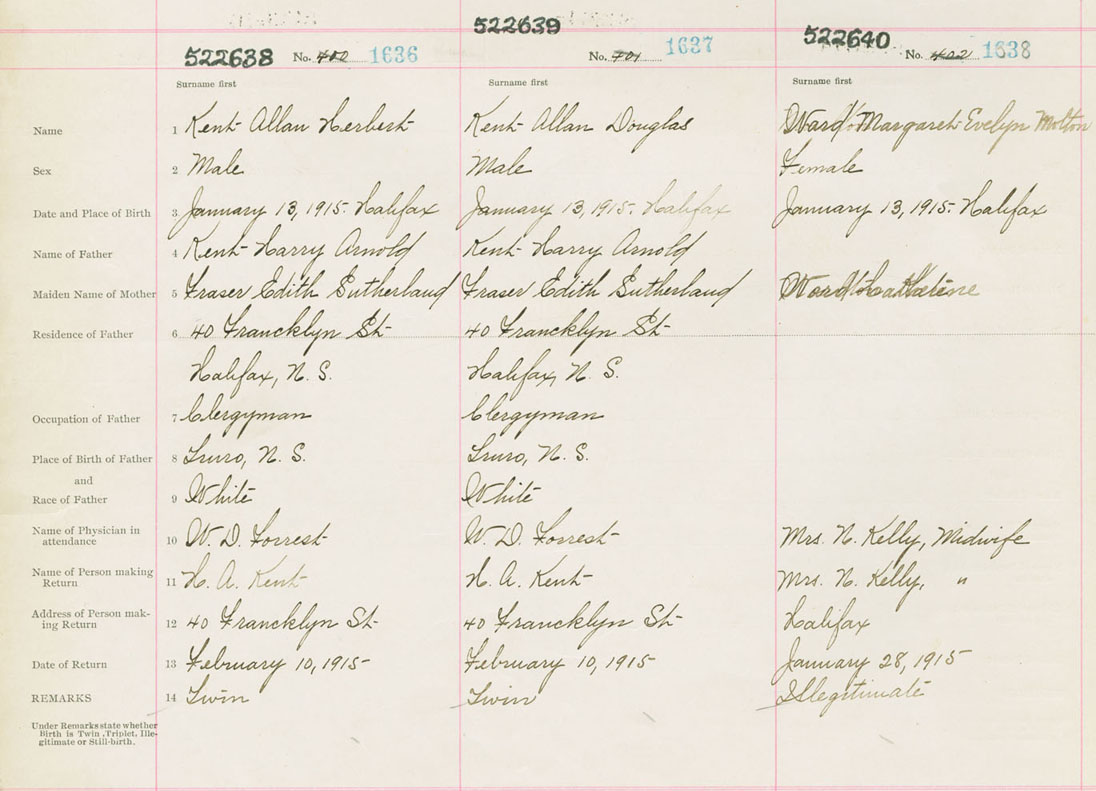 522638 No. 400 1636 522639 No. 401 1637 522640 No. 402 1638
Surname first Surname first Surname first
Name 1 Kent Allan Herbert Kent Allan Douglas Ward Margaret Evelyn Molton
Sex 2 Male Male Female
Date and Place of Birth 3 January 13, 1915. Halifax January 13, 1915. Halifax January 13, 1915. Halifax
Name of Father 4 Kent Harry Arnold Kent Harry Arnold
Maiden Name of Mother 5 Fraser Edith Sutherland Fraser Edith Sutherland Ward
Residence of Father 6 40 Francklyn St. 40 Francklyn St.
Halifax, N. S. Halifax, N. S.
Occupation of Father 7 Clergyman Clergyman
Place of Birth of Father 8 Truro, N. S. Truro, N. S.
and
Race of Father 9 White White
Name of Physician in
attendance 10 W. D. Forrest W. D. Forrest Mrs. N. Kelly, Midwife
Name of Person making
Return 11 H. A. Kent H. A. Kent Mrs. N. Kelly, "
Address of Person mak-
ing Return 12 40 Francklyn St. 40 Francklyn St. Halifax
Date of Return 13 February 10, 1915 February 10, 1915 January 28, 1915
REMARKS 14 Twin Twin Illegitimate
Under Remarks state whether
Birth is Twin, Triplet, Ille-
gitimate or Still-birth.